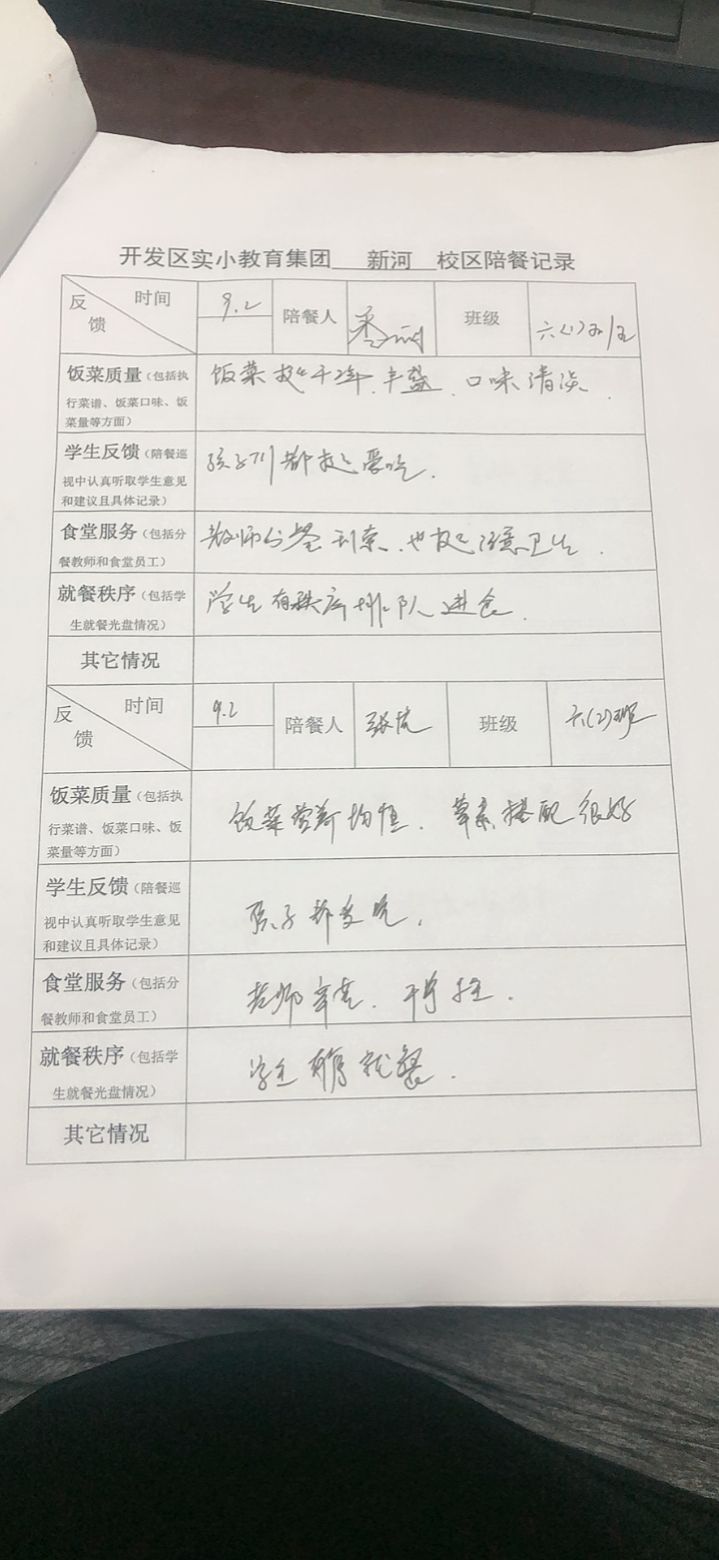 开发区实小教育集团 新河 校区陪餐记录
反 时间 9.2 陪餐人 班级 六(1)
馈
饭菜质量(包括执 饭菜 丰盛、口味清淡.
行菜谱、饭菜口味、饭
菜量等方面)
学生反馈(陪餐巡 孩子们都挺爱吃.
视中认真听取学生意见
和建议且具体记录)
食堂服务(包括分 教师分餐 也挺注意卫生.
餐教师和食堂员工)
就餐秩序(包括学 学生有秩序排队进食.
生就餐光盘情况)
其它情况
反 时间 9.2 陪餐人 班级 六(2)班
馈
饭菜质量(包括执 饭菜营养均恒.荤素搭配很好
行菜谱、饭菜口味、饭
菜量等方面)
学生反馈(陪餐巡 孩子都爱吃.
视中认真听取学生意见
和建议且具体记录)
食堂服务(包括分 老师辛苦.干净
餐教师和食堂员工)
就餐秩序(包括学 学生有序就餐.
生就餐光盘情况)
其它情况